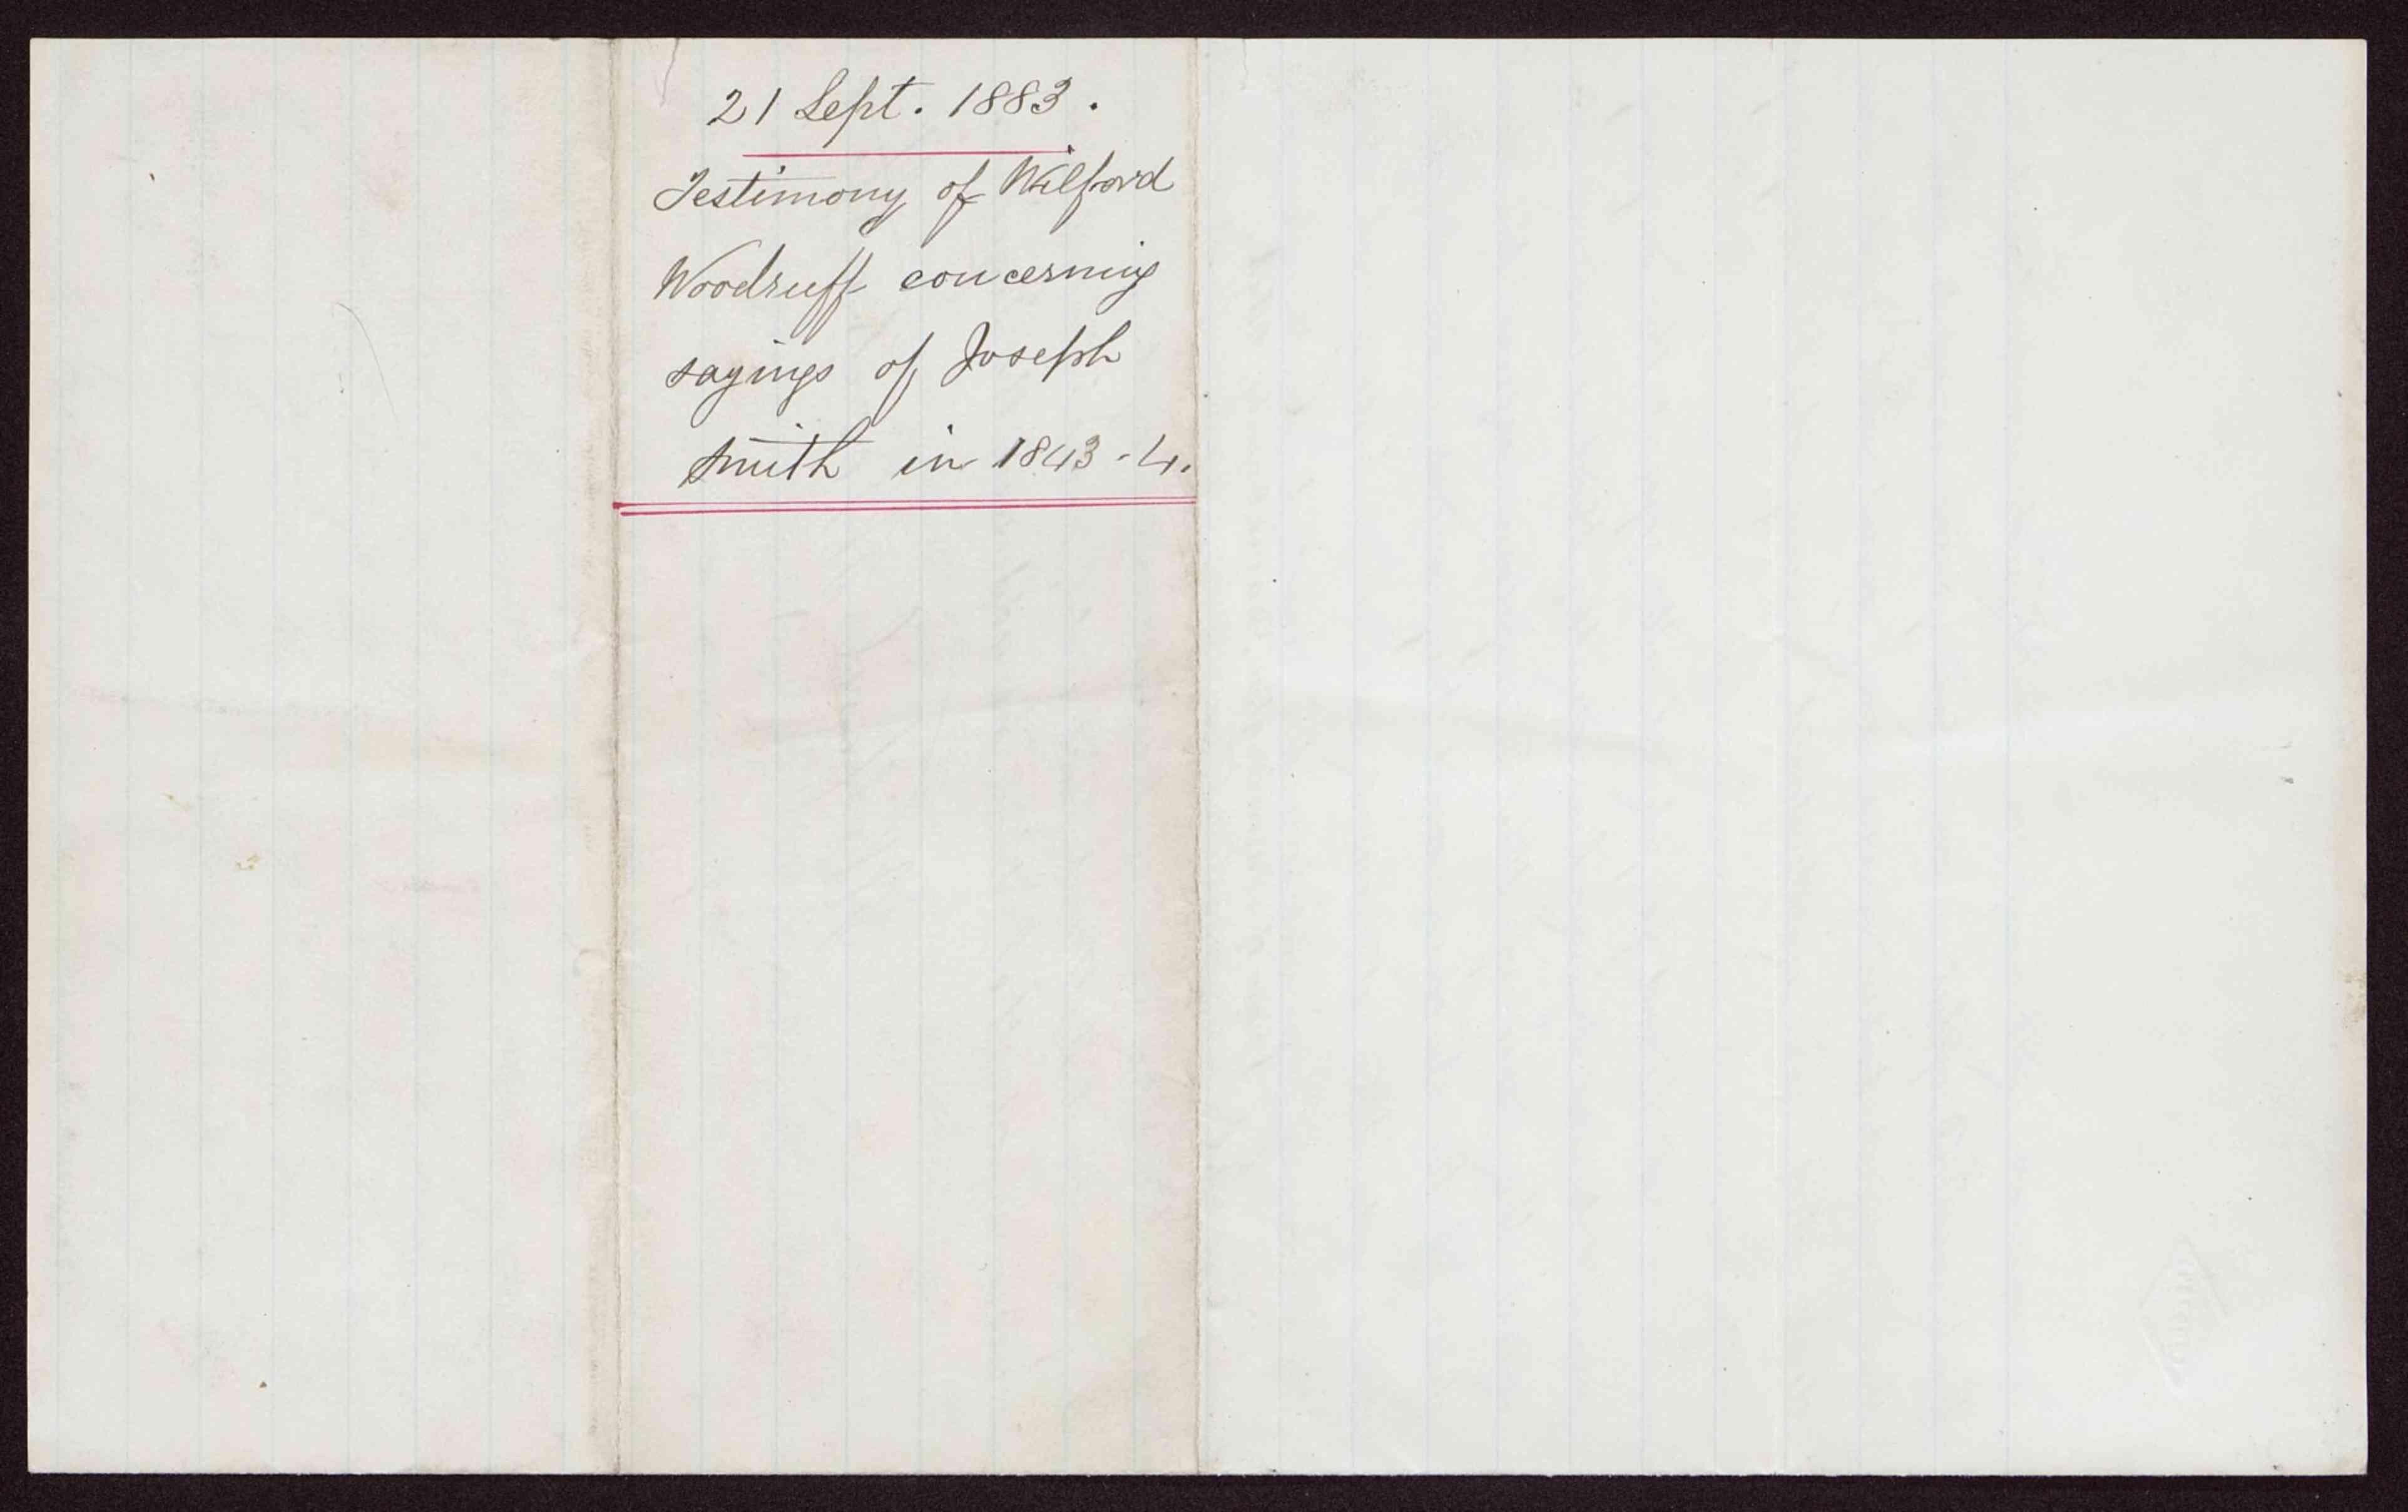 21 Sept. 1883.
Testimony of Wilford
Woodruff concerning
sayings of Joseph
Smith in 1843-4.